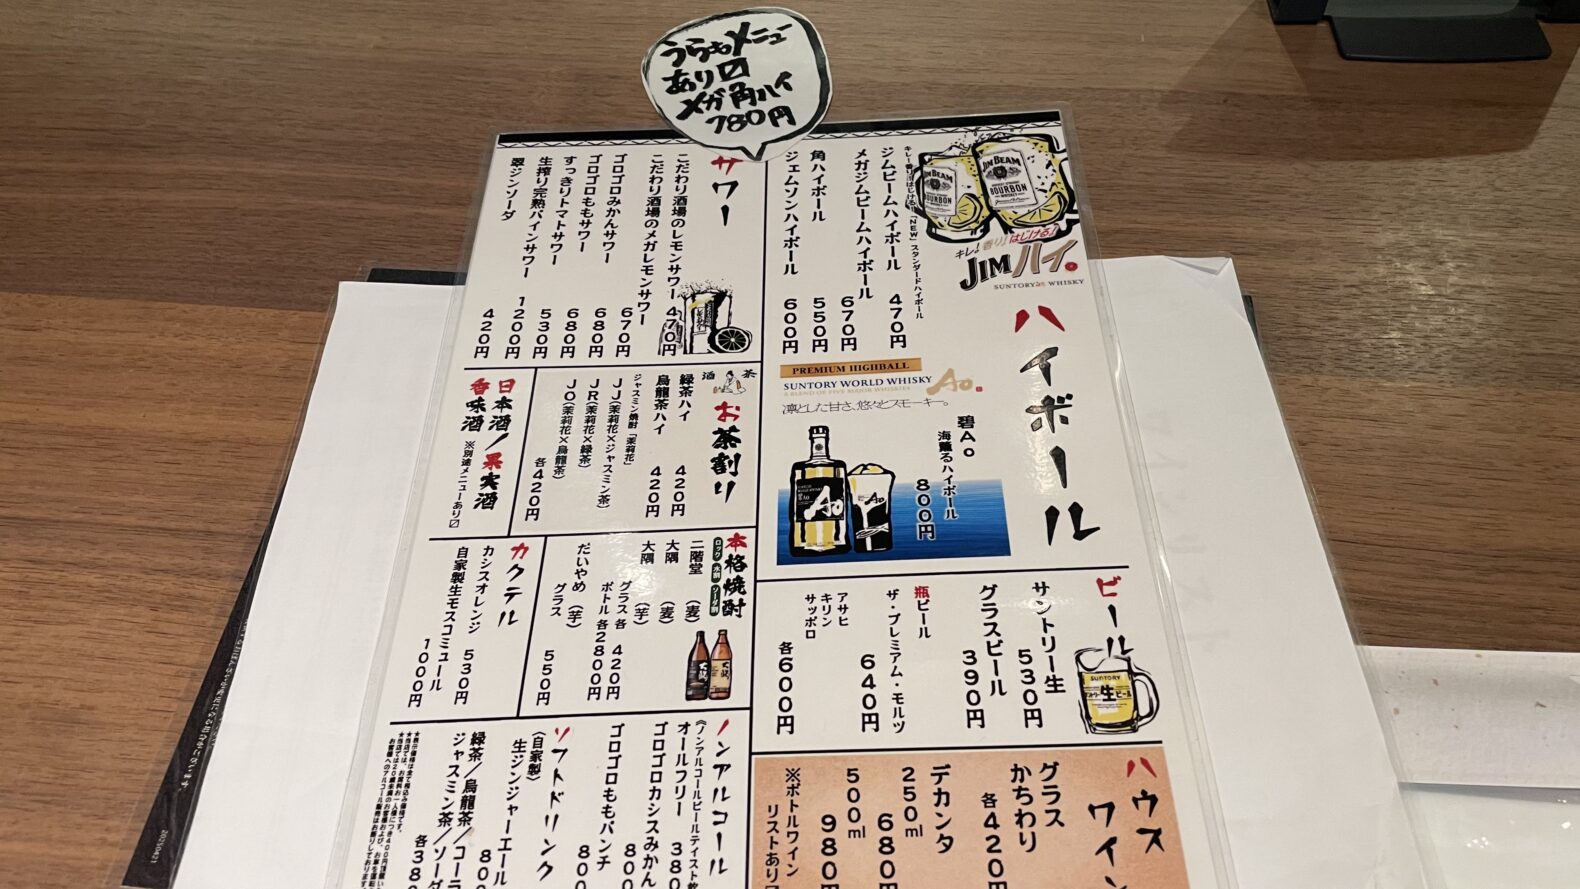 うらもメニュー
あり〼
メガ角ハイ
780円
JIM BEAM
BOURBON
JIM BEAM
BOURBON
キレ!香り!はじける!
JIMハイ。
SUNTORY WHISKY
ハイボール
キレ!香り!はじける!「NEW」スタンダードハイボール
ジムビームハイボール 470円
メガジムビームハイボール 670円
角ハイボール 550円
ジェムソンハイボール 600円
PREMIUM HIGHBALL
SUNTORY WORLD WHISKY
A BLEND OF FIVE MAJOR WHISKIES
Ao。
凛とした甘さ、悠々とスモーキー。
碧Ao
海薫るハイボール
800円
Ao
Ao
ビール
サントリー生 530円
グラスビール 390円
瓶ビール
ザ・プレミアム・モルツ 640円
アサヒ
キリン
サッポロ
各600円
SUNTORY
生
ビール
ハウスワイン
グラス
かちわり
各420円
デカンタ
250ml 680円
500ml 980円
※ボトルワイン
リストあり〼
サワー
こだわり酒場のレモンサワー 470円
こだわり酒場のメガレモンサワー 670円
ゴロゴロみかんサワー 680円
ゴロゴロももサワー 680円
すっきりトマトサワー 530円
生搾り完熟パインサワー 1200円
翠ジンソーダ 420円
酒 茶
お茶割り
緑茶ハイ 420円
烏龍茶ハイ 420円
ジャスミン焼酎「茉莉花」
JJ(茉莉花×ジャスミン茶)
JR(茉莉花×緑茶)
JO(茉莉花×烏龍茶)
各420円
日本酒/果実酒
香味酒
※別途メニューあり〼
本格焼酎
ロック 水割 ソーダ割
二階堂(麦)
大隅(麦)
大隅(芋)
グラス各420円
ボトル各2800円
だいやめ(芋)
グラス 550円
カクテル
カシスオレンジ 530円
自家製生モスコミュール 1000円
ノンアルコール
オールフリー 380
ゴロゴロカシスみかん 800
ゴロゴロももパンチ 800
ソフトドリンク
(自家製)
生ジンジャーエール 800
緑茶/烏龍茶/コーラ
ジャスミン茶/ソーダ
各380
20250421